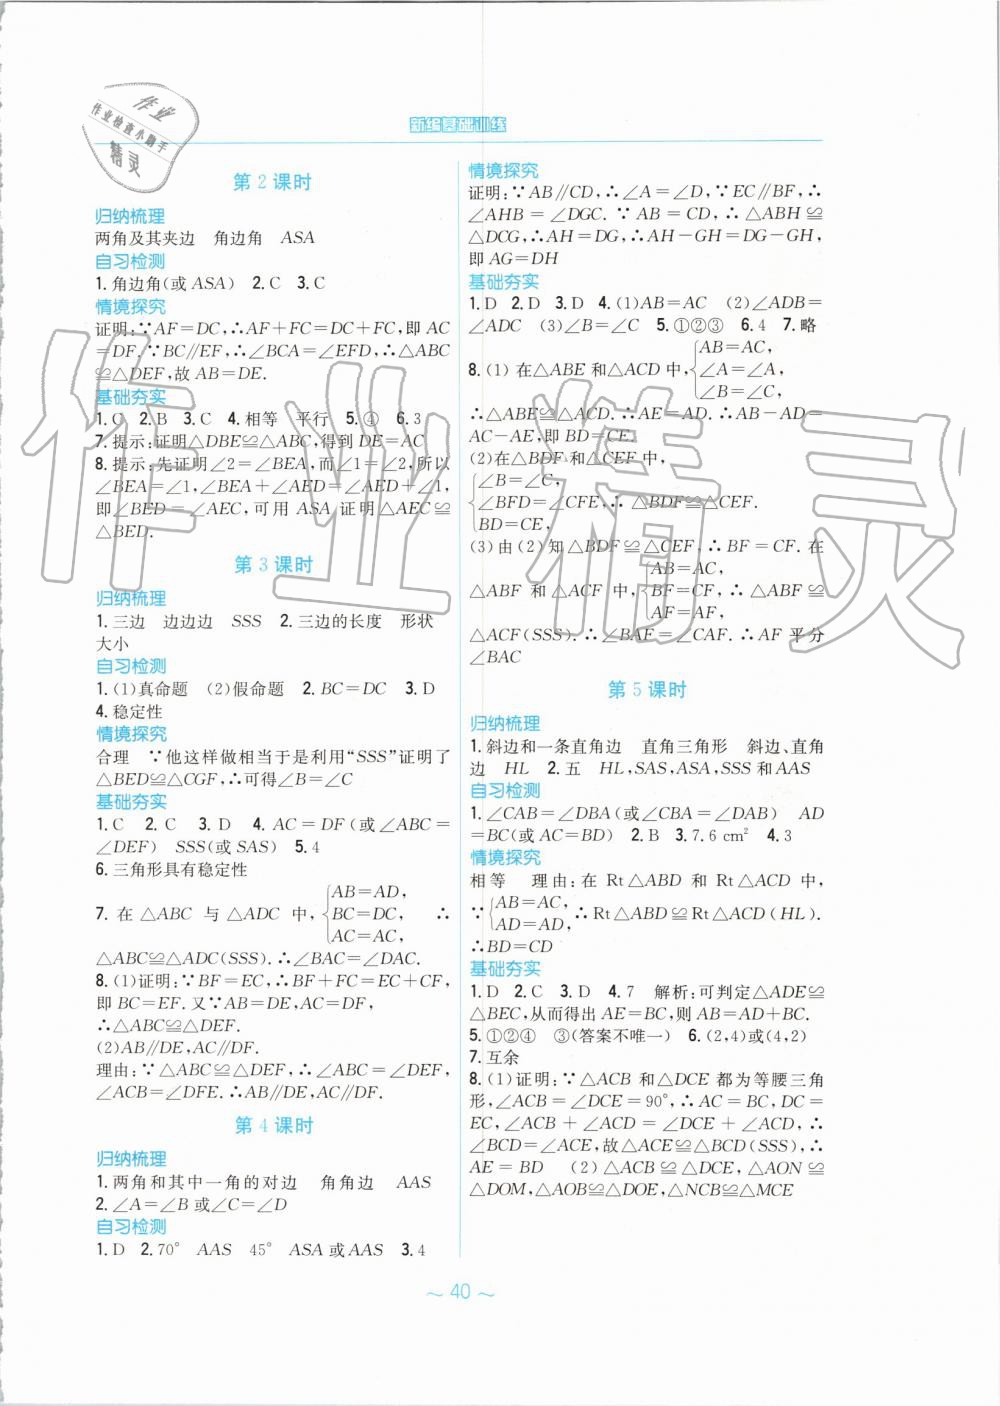 作业
作业检查小助手
精灵
新编基础训练
第2课时
归纳梳理
两角及其夹边　角边角　ASA
自习检测
1.角边角(或 ASA)　2.C　3.C
情境探究
证明:∵AF=DC,∴AF+FC=DC+FC,即 AC
=DF.∵BC∥EF,∴∠BCA=∠EFD,∴△ABC
≌△DEF,故 AB=DE.
基础夯实
1.C　2.B　3.C　4.相等　平行　5.④　6.3
7.提示:证明△DBE≌△ABC,得到 DE=AC
8.提示:先证明∠2=∠BEA,而∠1=∠2,所以
∠BEA=∠1,∠BEA+∠AED=∠AED+∠1,
即∠BED=∠AEC,可用 ASA 证明△AEC≌
△BED.
第3课时
归纳梳理
1.三边　边边边　SSS　2.三边的长度　形状
大小
自习检测
1.(1)真命题　(2)假命题　2.BC=DC　3.D
4.稳定性
情境探究
合理　∵他这样做相当于是利用“SSS”证明了
△BED≌△CGF,∴可得∠B=∠C
基础夯实
1.C　2.C　3.D　4.AC=DF(或∠ABC=
∠DEF)　SSS(或 SAS)　5.4
6.三角形具有稳定性
AB=AD,
7.在△ABC 与△ADC 中,{BC=DC,　∴
AC=AC,
△ABC≌△ADC(SSS).∴∠BAC=∠DAC.
8.(1)证明:∵BF=EC,∴BF+FC=EC+CF,
即 BC=EF.又∵AB=DE,AC=DF,
∴△ABC≌△DEF.
(2)AB∥DE,AC∥DF.
理由:∵△ABC≌△DEF,∴∠ABC=∠DEF,
∠ACB=∠DFE.∴AB∥DE,AC∥DF.
第4课时
归纳梳理
1.两角和其中一角的对边　角角边　AAS
2.∠A=∠B 或∠C=∠D
自习检测
1.D　2.70°　AAS　45°　ASA 或 AAS　3.4
情境探究
证明:∵AB∥CD,∴∠A=∠D,∵EC∥BF,∴
∠AHB=∠DGC.∵AB=CD,∴△ABH≌
△DCG,∴AH=DG,∴AH-GH=DG-GH,
即 AG=DH
基础夯实
1.D　2.D　3.D　4.(1)AB=AC　(2)∠ADB=
∠ADC　(3)∠B=∠C　5.①②③　6.4　7.略
AB=AC,
8.(1)在△ABE 和△ACD 中,{∠A=∠A,
∠B=∠C,
∴△ABE≌△ACD.∴AE=AD.∴AB-AD=
AC-AE,即 BD=CE.
(2)在△BDF 和△CEF 中,
{∠B=∠C,
∠BFD=∠CFE,∴△BDF≌△CEF.
BD=CE,
(3)由(2)知△BDF≌△CEF,∴BF=CF.在
AB=AC,
△ABF 和△ACF 中,{BF=CF,∴△ABF≌
AF=AF,
△ACF(SSS).∴∠BAF=∠CAF.∴AF 平分
∠BAC
第5课时
归纳梳理
1.斜边和一条直角边　直角三角形　斜边、直角
边　HL　2.五　HL,SAS,ASA,SSS 和 AAS
自习检测
1.∠CAB=∠DBA(或∠CBA=∠DAB)　AD
=BC(或 AC=BD)　2.B　3.7.6 cm²　4.3
情境探究
相等　理由:在 Rt△ABD 和 Rt△ACD 中,
∵{AB=AC,
AD=AD,∴Rt△ABD≌Rt△ACD(HL).
∴BD=CD
基础夯实
1.D　2.C　3.D　4.7　解析:可判定△ADE≌
△BEC,从而得出 AE=BC,则 AB=AD+BC.
5.①②④　③(答案不唯一)　6.(2,4)或(4,2)
7.互余
8.(1)证明:∵△ACB 和△DCE 都为等腰三角
形,∠ACB=∠DCE=90°,∴AC=BC,DC=
EC,∠ACB+∠ACD=∠DCE+∠ACD,∴
∠BCD=∠ACE,故△ACE≌△BCD(SSS),∴
AE=BD　(2)△ACB≌△DCE,△AON≌
△DOM,△AOB≌△DOE,△NCB≌△MCE
～40～
作业精灵